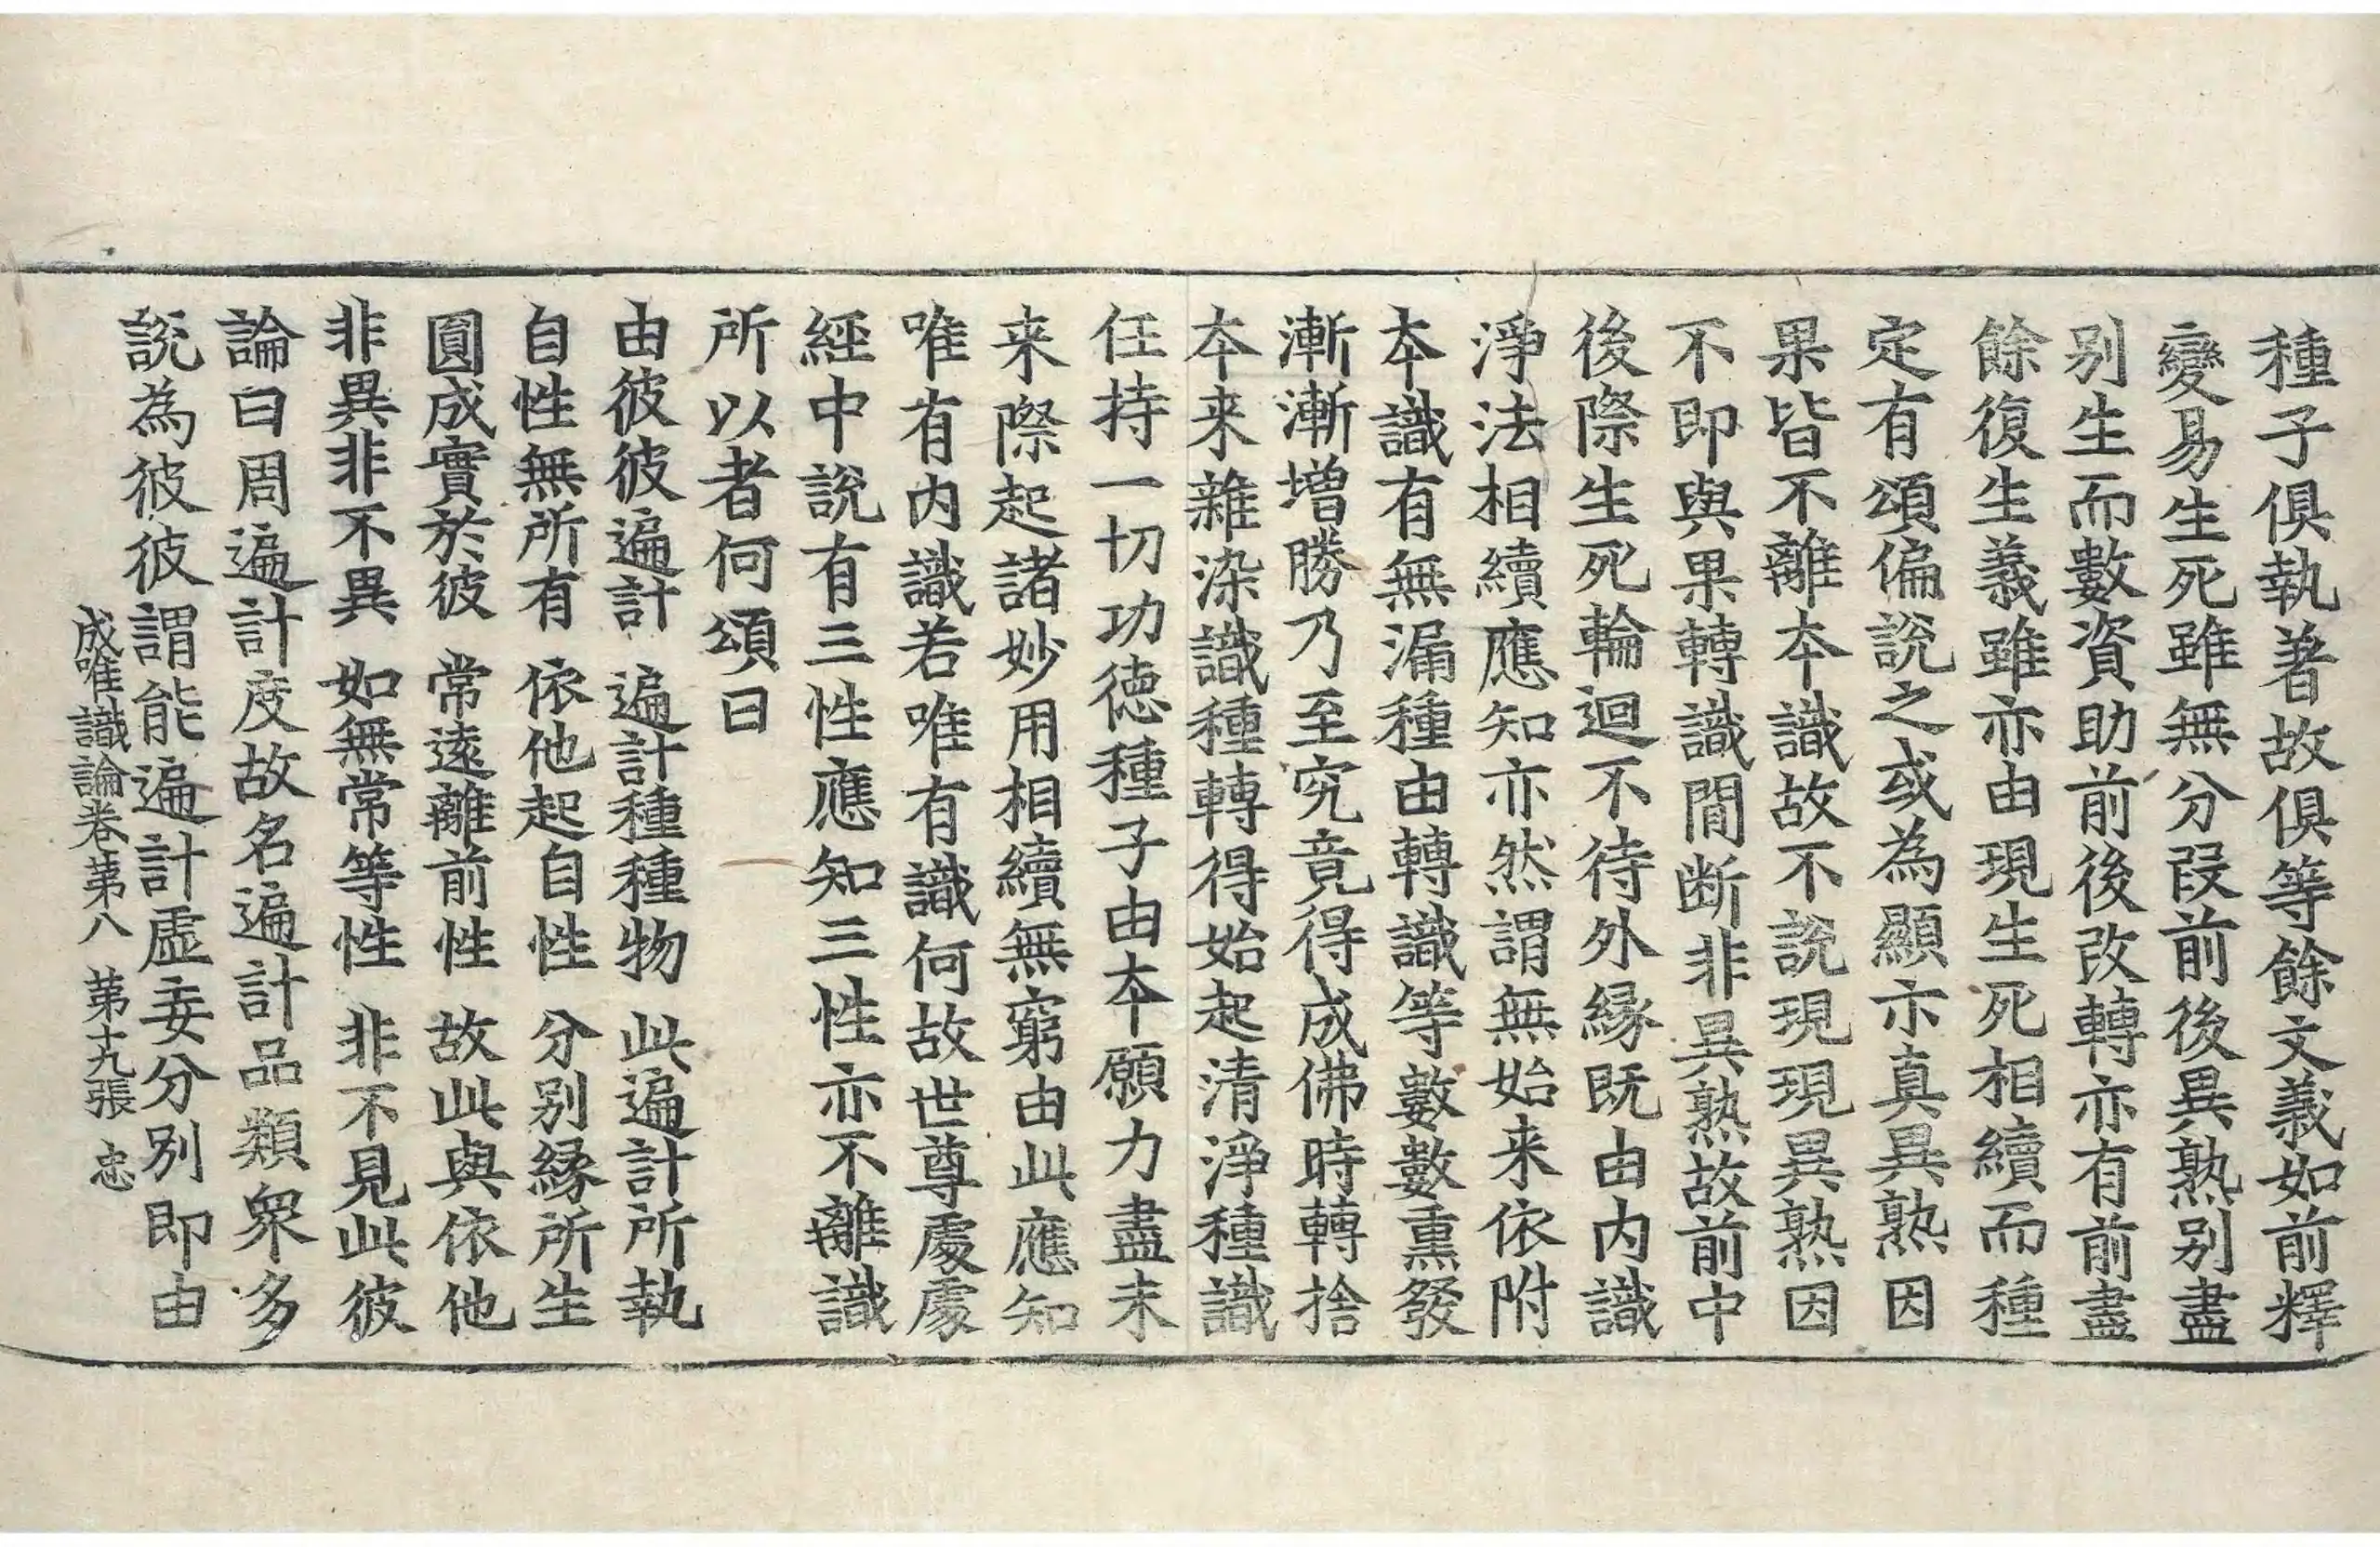 種子俱執著故俱等餘文義如前釋
變易生死雖無分段前後異熟別盡
別生而數資助前後改轉亦有前盡
餘復生義雖亦由現生死相續而種
定有頌偏說之或為顯示真異熟因
果皆不離本識故不說現現異熟因
不即與果轉識間断非異熟故前中
後際生死輪迴不待外緣既由內識
淨法相續應知亦然謂無始来依附
本識有無漏種由轉識等數數熏發
漸漸增勝乃至究竟得成佛時轉捨
本来雜染識種轉得始起清淨種識
任持一切功德種子由本願力盡未
来際起諸妙用相續無窮由此應知
唯有內識若唯有識何故世尊處處
經中說有三性應知三性亦不離識
所以者何頌曰
由彼彼遍計 遍計種種物 此遍計所執
自性無所有 依他起自性 分別緣所生
圓成實於彼 常遠離前性 故此與依他
非異非不異 如無常等性 非不見此彼
論曰周遍計度故名遍計品類眾多
說為彼彼謂能遍計虛妄分別即由
成唯識論卷苐八 苐十九張 忠